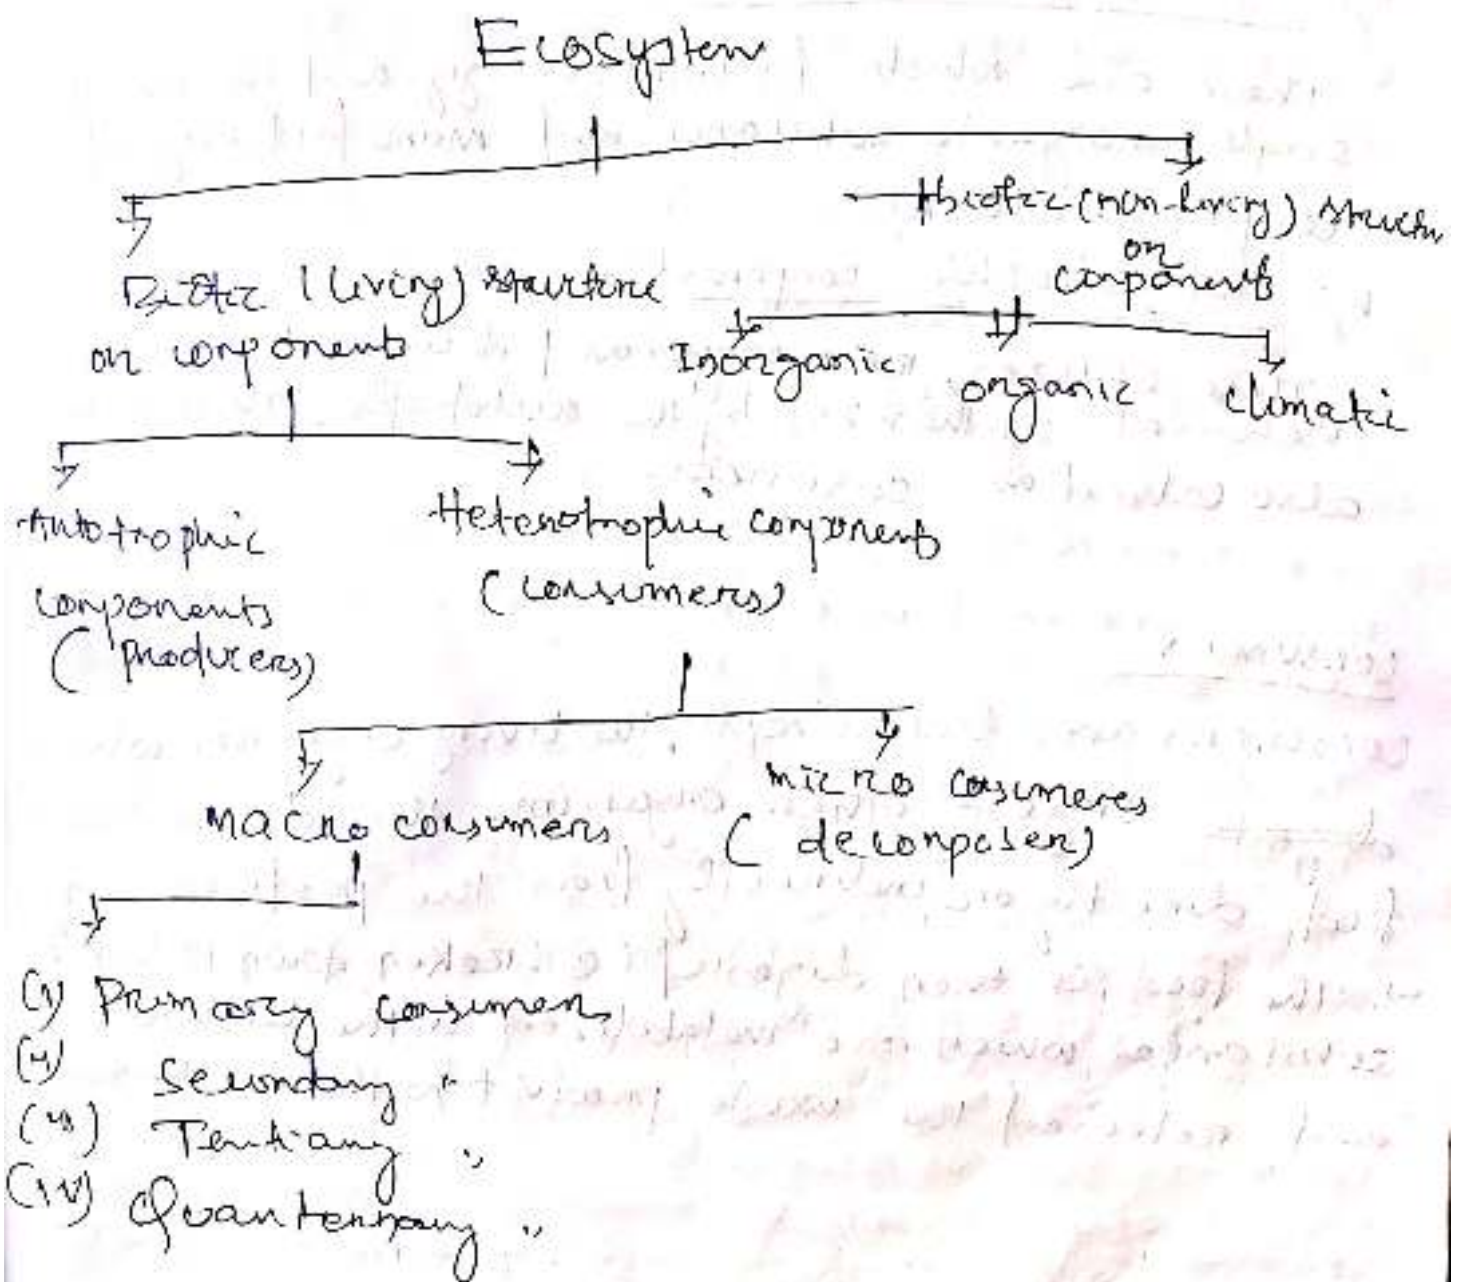 Ecosystem
Abiotic (non-living) structur
or
components
Biotic (living) structure
or components
Inorganic
organic
climatic
Autotrophic
components
(producers)
Heterotrophic components
(consumers)
macro consumers
micro cosumeres
(decomposer)
(i) Primary consumers
(ii) Secondary "
(iii) Tertiary "
(iv) Quarternary "